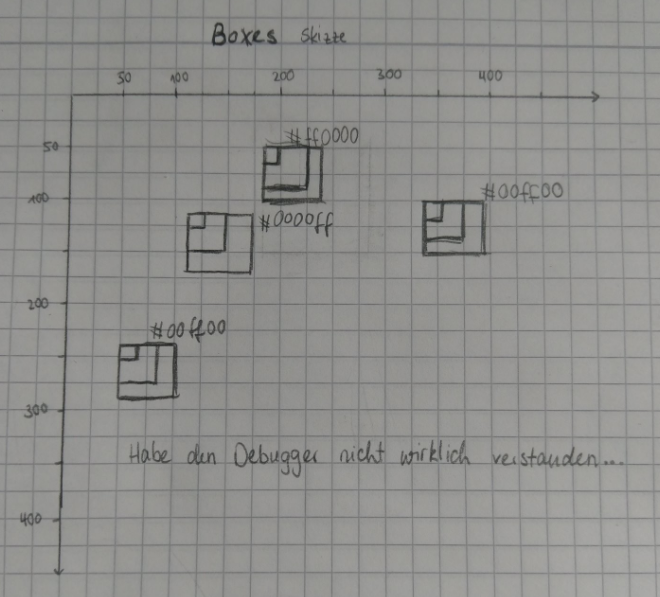 Boxes Skizze
50 100 200 300 400
50
#ff0000
100
#00ff00
#0000ff
200
#00ff00
300
Habe den Debugger nicht wirklich verstanden...
400